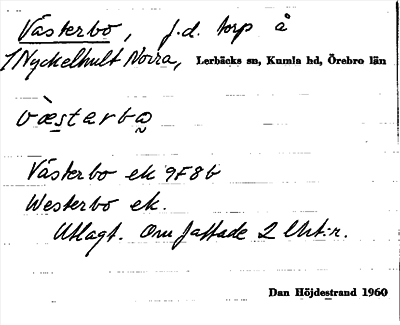 Västerbo, f.d. torp å
1/Nyckelhult Norra, Lerbäcks sn, Kumla hd, Örebro län
Västerbo ek 9F8b
Westerbo ek.
Utlagt. Omfattade 2 
Dan Höjdestrand 1960